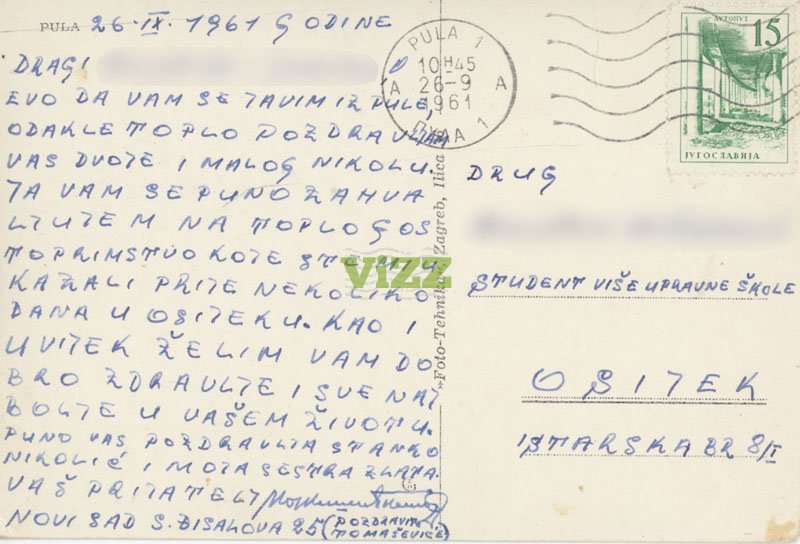 PULA 26-IX-1961 GODINE
DRAGI
EVO DA VAM SE JAVIM IZ PULE,
ODAKLE TOPLO POZDRAVLJAM
VAS DVOJE I MALOG NIKOLU.
JA VAM SE PUNO ZAHVA
LJUJEM NA TOPLO GOS
TOPRIMSTVO KOJE STE MI U
KAZALI PRIJE NEKOLIKO
DANA U OSIJEKU. KAO I
UVIJEK ŽELIM VAM DO
BRO ZDRAVLJE I SVE NAJ
BOLJE U VAŠEM ŽIVOTU.
PUNO VAS POZDRAVLJA STANKO
NIKOLIĆ I MOJA SESTRA ZLATA.
VAŠ PRIJATELJ
NOVI SAD S. ĐISALOVA 25 (POZDRAVITE
TOMAŠEVIĆE)
»Foto-Tehnika« Zagreb, Ilica
VIZZ
PULA 1
10H45
A 26-9 A
1961
ПУЛА 1
АУТОПУТ
15
ЈУГОСЛАВИЈА
DRUG
STUDENT VIŠE UPRAVNE ŠKOLE
OSIJEK
ISTARSKA BR 8/I